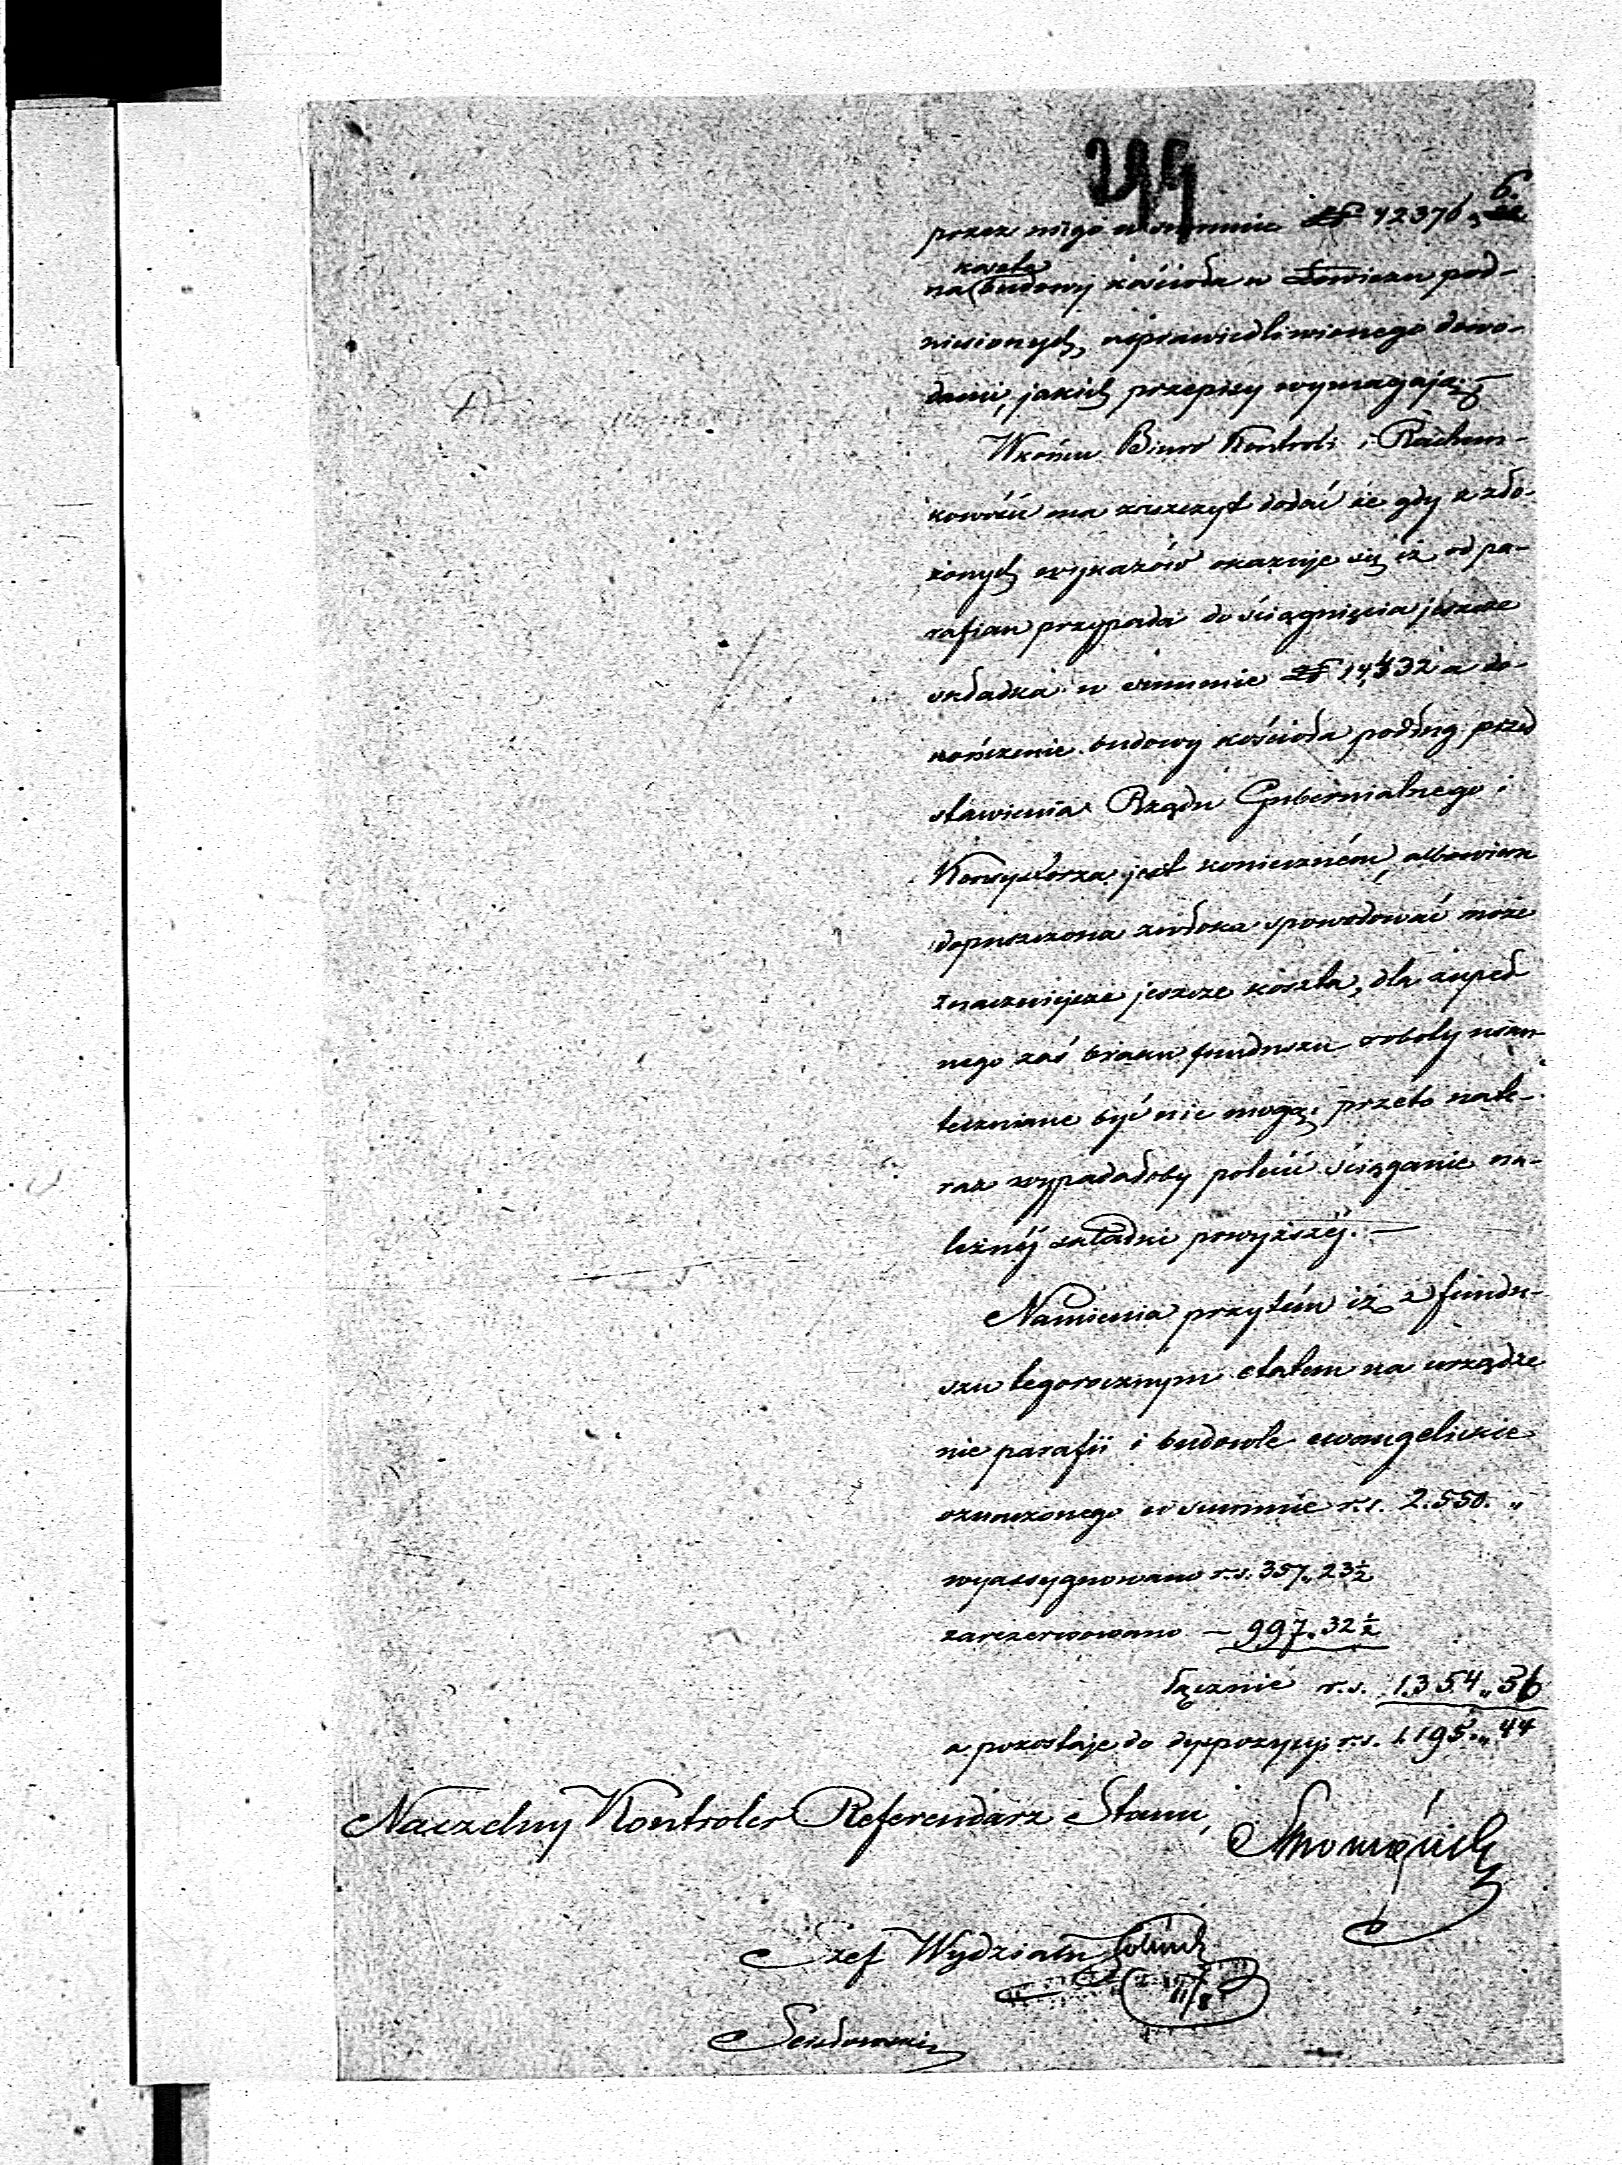 299
przez niego w summie zł 12376 „ 6.
koszta
na budowy kościoła w Łowiczu pod-
niesionych, usprawiedliwionego dowo-
dami, jakich przepisy wymagają. —
Wkońcu Biuro Kontroli i Rachun-
kowości ma zaszczyt dodać że gdy z zło-
żonych wykazów okazuje się iż od pa-
rafian przypada do ściągnięcia jeszcze
składka w summie zł 14,432 a do-
kończenie budowy kościoła podług przed
stawienia Rządu Gubernialnego i
Konsystorza jest konieczném, albowiem
dopuszczona zwłoka spowodować może
znaczniejsze jeszcze koszta, dla zupeł
nego zaś braku funduszu roboty usku-
teczniane być nie mogą; przeto nate-
raz wypadałoby polecić ściąganie na-
leżnéj składki powyższéj. —
Namienia przytém iż z fundu-
szu tegorocznym etatem na urządze
nie parafii i budowle ewangelickie
oznaczonego w summie r.s. 2.550. „
wyassygnowano r.s. 357. 23½
zarezerwowano — 997. 32½
łącznie r.s. 1354 „ 56
a pozostaje do dyspozycyi r.s. 1.195 „ 44
Naczelny Kontroler Referendarz Stanu,
Szef Wydziału